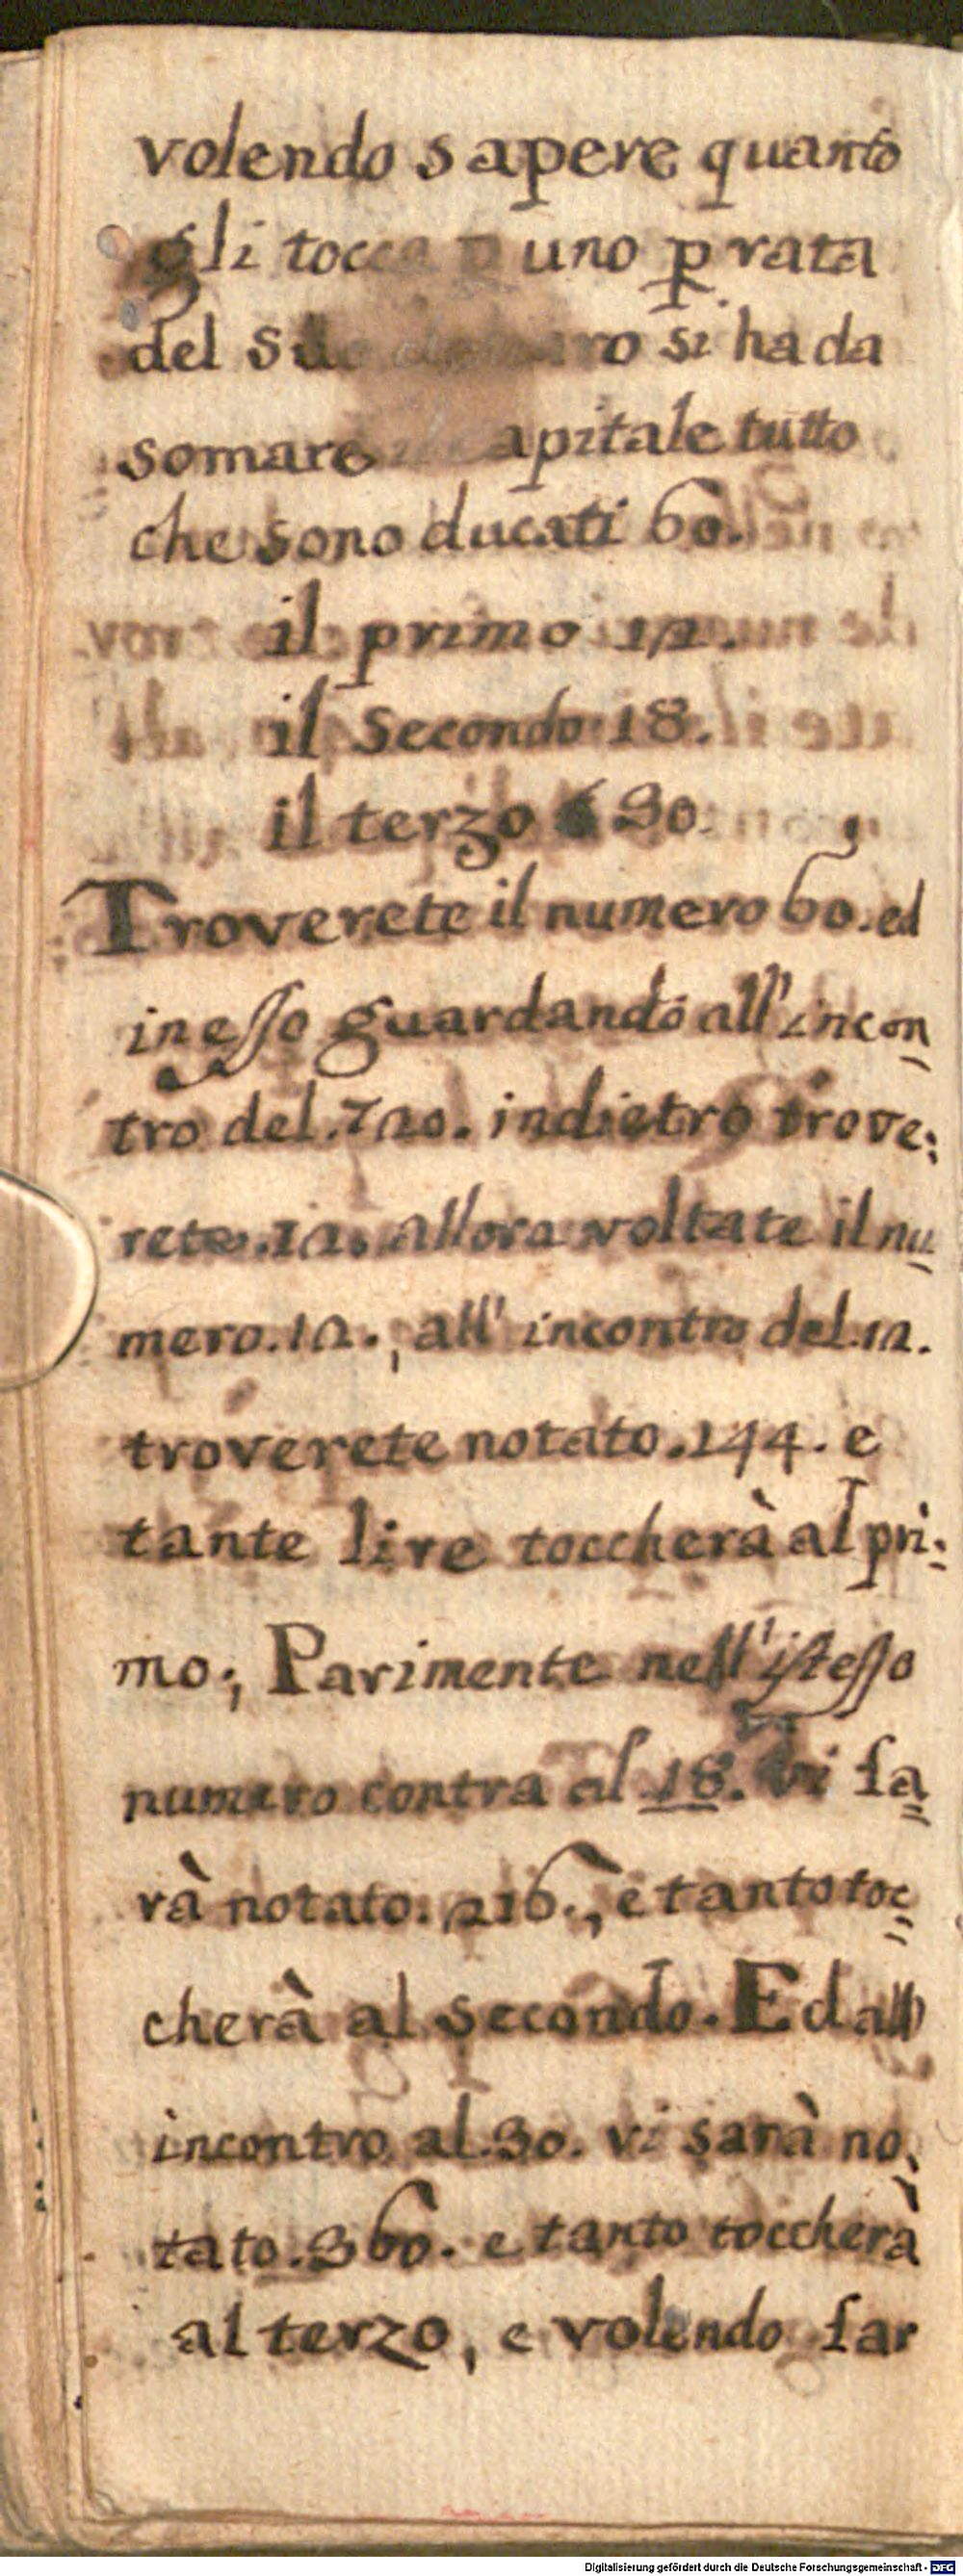 volendo sapere quanto
gli tocca p uno p rata
del suo ro si ha da
somare apitale tutto
che sono ducati 60.
il primo 12.
il secondo 18.
il terzo 30.
Troverete il numero 60. ed
in eſſo guardando all'incon
tro del. 720. indietro trove:
rete. 12. allora voltate il nu
mero. 12., all' incontro del. 12.
troverete notato. 144. e
tante lire toccherà al pri:
mo; Parimente nell'iſteſſo
numero contra al 18. vi ſa
rà notato. 216., e tanto toc
cherà al secondo. Ed all'
incontro al. 30. vi sarà no,
tato. 360. e tanto toccherà
al terzo, e volendo far
Digitalisierung gefördert durch die Deutsche Forschungsgemeinschaft - DFG